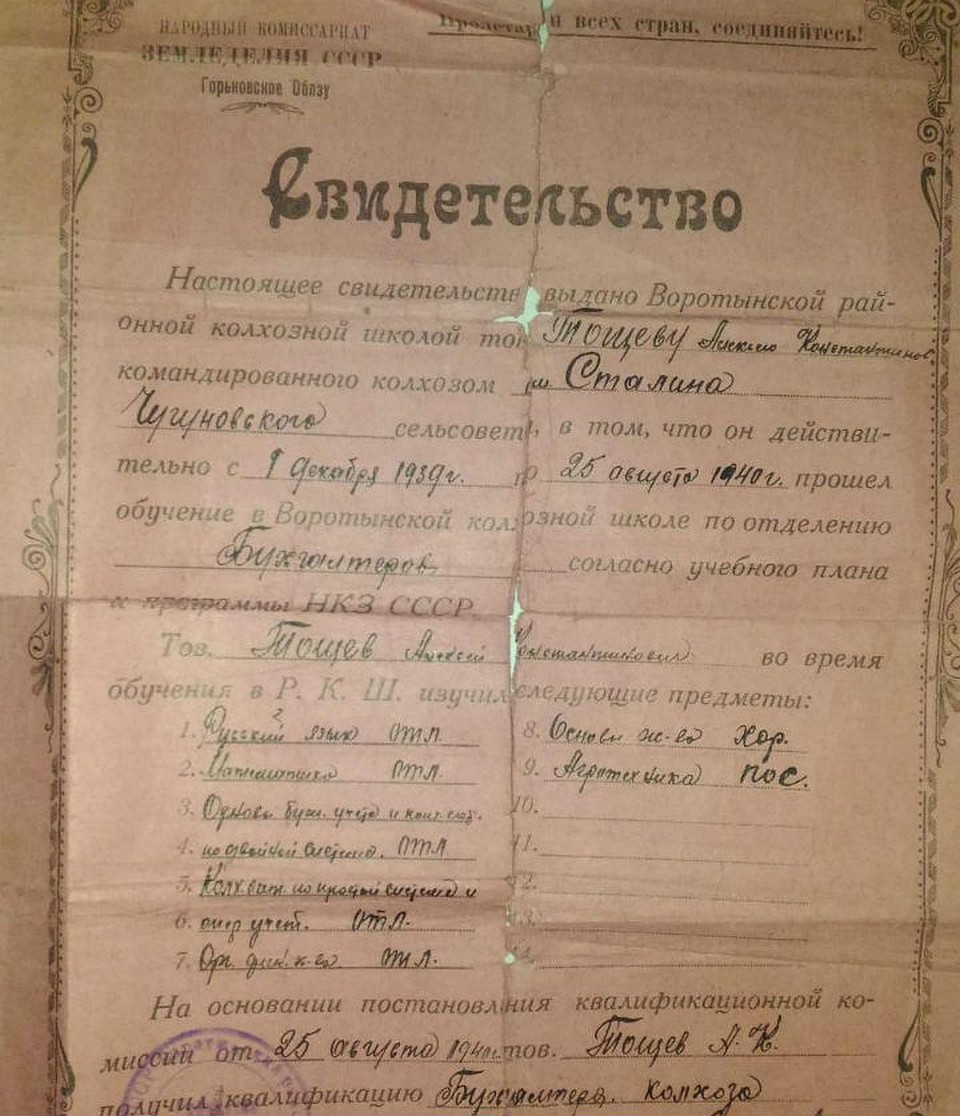 НАРОДНЫЙ КОМИССАРИАТ
ЗЕМЛЕДЕЛИЯ СССР
Горьковское Облзу
и всех стран, соединяйтесь!
Свидетельство
Настоящее свидетельств выдано Воротынской рай-
онной колхозной школой тов Тощеву Алексею Константинов
командированного колхозом им. Сталина
Чугуновского сельсовета, в том, что он действи-
тельно с 1 декабря 1939г. по 25 августа 1940г. прошел
обучение в Воротынской колхозной школе по отделению
Бухгалтеров согласно учебного плана
и программы НКЗ СССР.
Тов. Тощев Алексей Константинович во время
обучения в Р. К. Ш. изучил следующие предметы:
1. Русский язык отл.
2. Математика отл.
3. Основы бух. учета и
4. по двойной системе. отл
5. по простой системе и
6. опер учет. отл.
7. Орг. отл.
8. Основы хор.
9. Агротехника пос.
10.
11.
12.
13.
14.
На основании постановления квалификационной ко-
миссии от 25 августа 1940г. тов. Тощев А. К.
получил квалификацию Бухгалтера колхоза